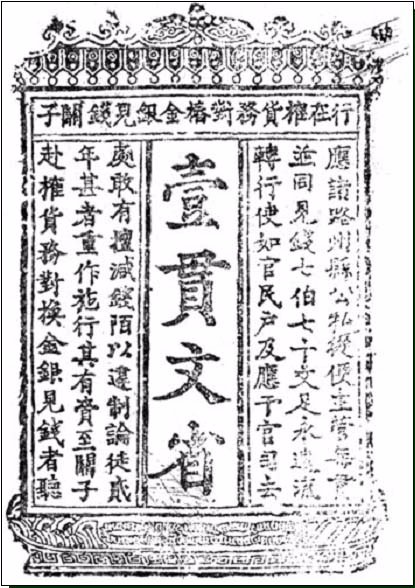 行在榷貨務對樁金銀見錢關子
應諸路州縣公私從便主管每貫
並同見錢七伯七十文足永遠流
轉行使如官民户及應干官司去
壹貫文省
處敢有擅減錢陌以違制論徒貳
年甚者重作施行其有賫至關子
赴榷貨務對换金銀見錢者聽